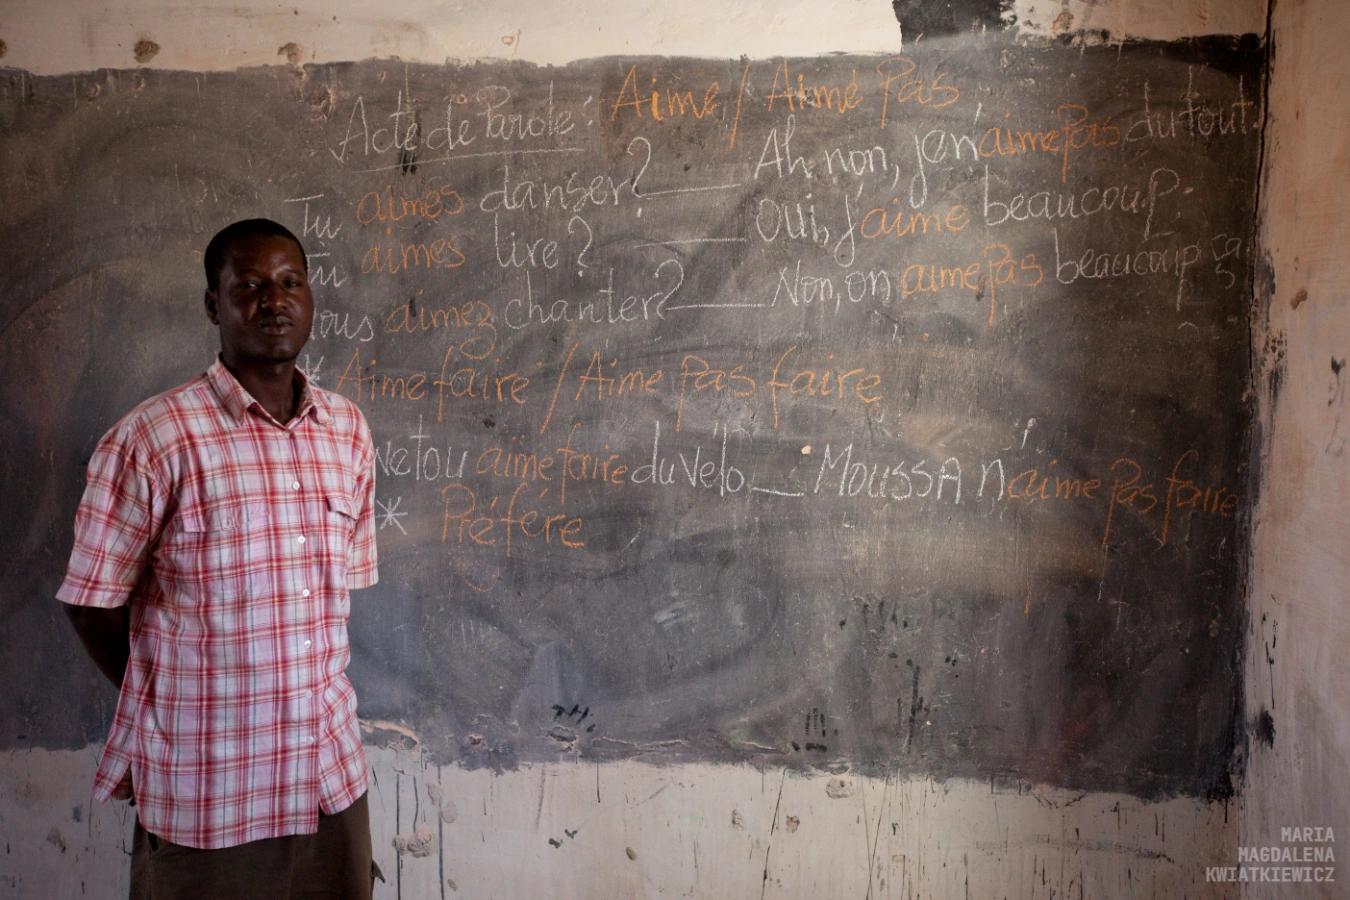 Acte de Parole: Aime / Aime Pas
Tu aimes danser? — Ah, non, je n'aime pas du tout.
Tu aimes lire? — Oui, j'aime beaucoup.
ous aimez chanter? — Non, on aime pas beaucoup ça
* Aime faire / Aime Pas faire
Netou aime faire du vélo — Moussa n'aime pas faire
* Préfére
MARIA
MAGDALENA
KWIATKIEWICZ